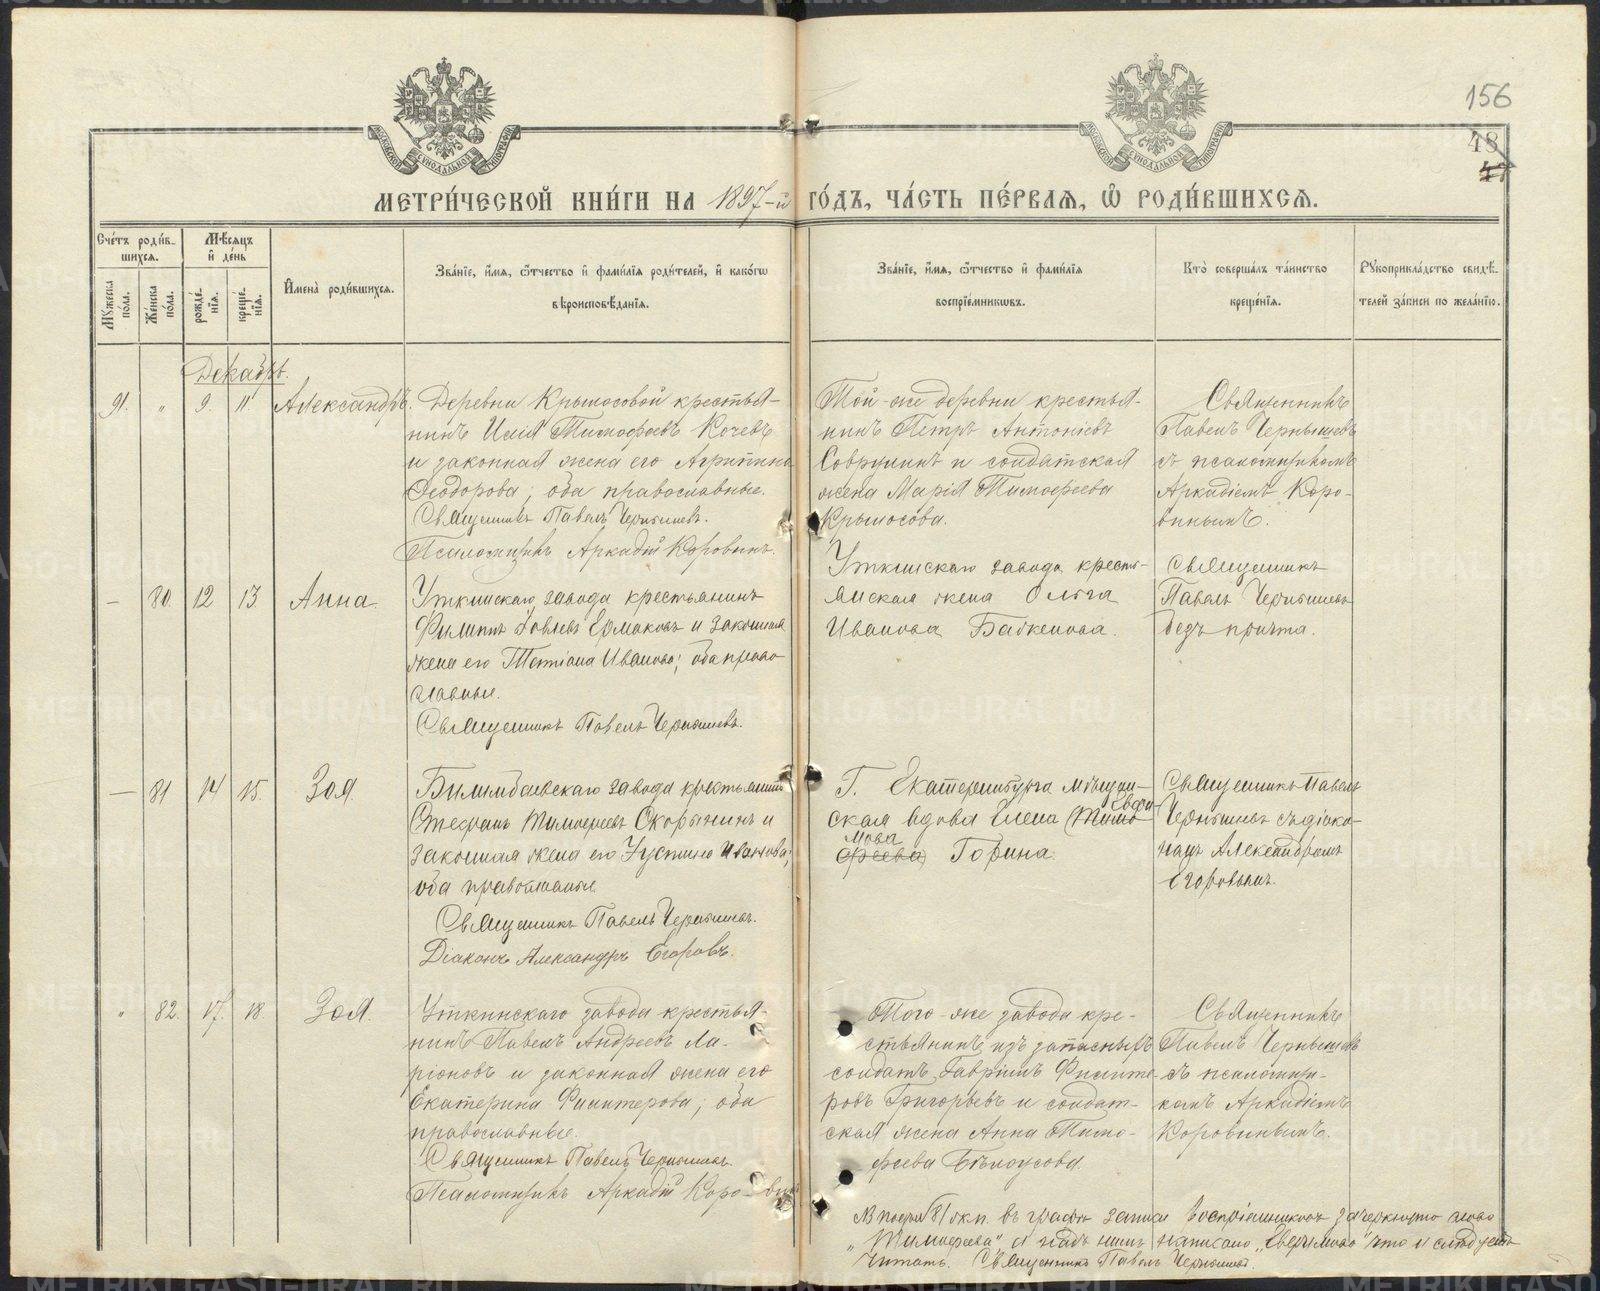 156
48
МЕТРИ́ЧЕСКОЙ КНИ́ГИ НА 1897-й ГО́ДЪ, ЧА́СТЬ ПЕ́РВАЯ, Ѡ҆ РОДИ́ВШИХСЯ.
Сче́тъ роди́в-
шихся.
Мѣ́сяцъ
и҆ де́нь
Му́жеска
по́ла.
Же́нска
по́ла.
рожде́-
нїя.
креще́-
нїя.
И҆мена̀ роди́вшихся.
Зва́нїе, и҆́мя, ѻ҆́тчество и҆ фами́лїя роди́телей, и҆ како́гѡ
вѣроисповѣ́данїя.
Зва́нїе, и҆́мя, ѻ҆́тчество и҆ фами́лїя
воспрїе́мникѡвъ.
Кто̀ соверша́лъ та́инство
креще́нїя.
Рꙋкоприкла́дство свидѣ́-
телей за́писи по жела́нїю.
Декабрь.
91. " 9. 11. Александръ.
Деревни Крылосовой крестья-
нинъ Илія Тимофеевъ Кочевъ
и законная жена его Агрипина
Ѳеодорова; оба православные.
Священникъ Павелъ Чернышевъ.
Псаломщикъ Аркадій Коровинъ.
Той-же деревни крестья-
нинъ Петръ Антоніевъ
и солдатская
жена Марія Тимофеева
Крылосова.
Священникъ
Павелъ Чернышевъ
съ псаломщикомъ
Аркадіемъ Коро-
винымъ.
— 80. 12 13 Анна.
Уткинскаго завода крестьянинъ
Филиппъ Іовлевъ Ермаковъ и законная
жена его Татіана Иванова; оба право-
славные.
Священникъ Павелъ Чернышевъ.
Уткинскаго завода кресть-
янская жена Ольга
Иванова Бабкенова.
Священникъ
Павелъ Чернышевъ
безъ причта.
— 81 14 15. Зоя.
Билимбаевскаго завода крестьянинъ
Стефанъ Тимофеевъ Скорынинъ и
законная жена его Устина Иванова;
оба православные.
Священникъ Павелъ Чернышевъ.
Діаконъ Александръ Егоровъ.
Г. Екатеринбурга мѣщан-
ская вдова Елена (Тимо-
феева) Горина.
Священникъ Павелъ
Чернышевъ съ діако-
номъ Александромъ
Егоровымъ.
" 82. 17. 18. Зоя.
Уткинскаго завода крестья-
нинъ Павелъ Андреевъ Ла-
ріоновъ и законная жена его
Екатерина Филитерова; оба
православные.
Священникъ Павелъ Чернышевъ.
Псаломщикъ Аркадій Коро-винъ
Того-же завода кре-
стьянинъ изъ запасныхъ
солдатъ Гавріилъ Филите-
ровъ Григорьевъ и солдат-
ская жена Анна Тимо-
феева Бѣлоусова.
Священникъ
Павелъ Чернышевъ
съ псаломщи-
комъ Аркадіемъ
Коровинымъ.
въ графѣ записи воспріемниковъ зачеркнуто слово
„Тимофеева" а надъ нимъ написано что и слѣдуетъ
читать. Священникъ Павелъ Чернышевъ.
METRIKI.GASO-URAL.RU